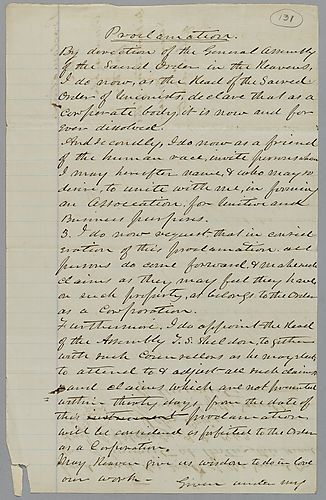 131
Proclamation.
By direction of the General Assembly
of the Sacred Order in the Heavens,
I do now, as the Head of the Sacred
Order of Unionists, declare that as a
Corporate body, it is now and for
ever dissolved.
And secondly, I do now as a friend
of the human race, invite persons whom
I may hereafter name, & who may so
desire, to unite with me, in forming
an Association, for Unitive and
Business purposes.
3. I do now request that in consid
eration of this proclamation all
persons do come forward, & make such
claims as they may feel they have
on such property, as belongs to the Order
as a Corporation.
Furthermore, I do appoint the Head
of the Assembly T. S. Sheldon, together
with such Counsellors as he may select
to attend to & adjust all such claims,
and claims which are not presented
within thirty days, from the date of
this proclamation
will be considered as forfeited to the Order
as a Corporation.
May Heaven give us wisdom to do in love
our work —
Given under my